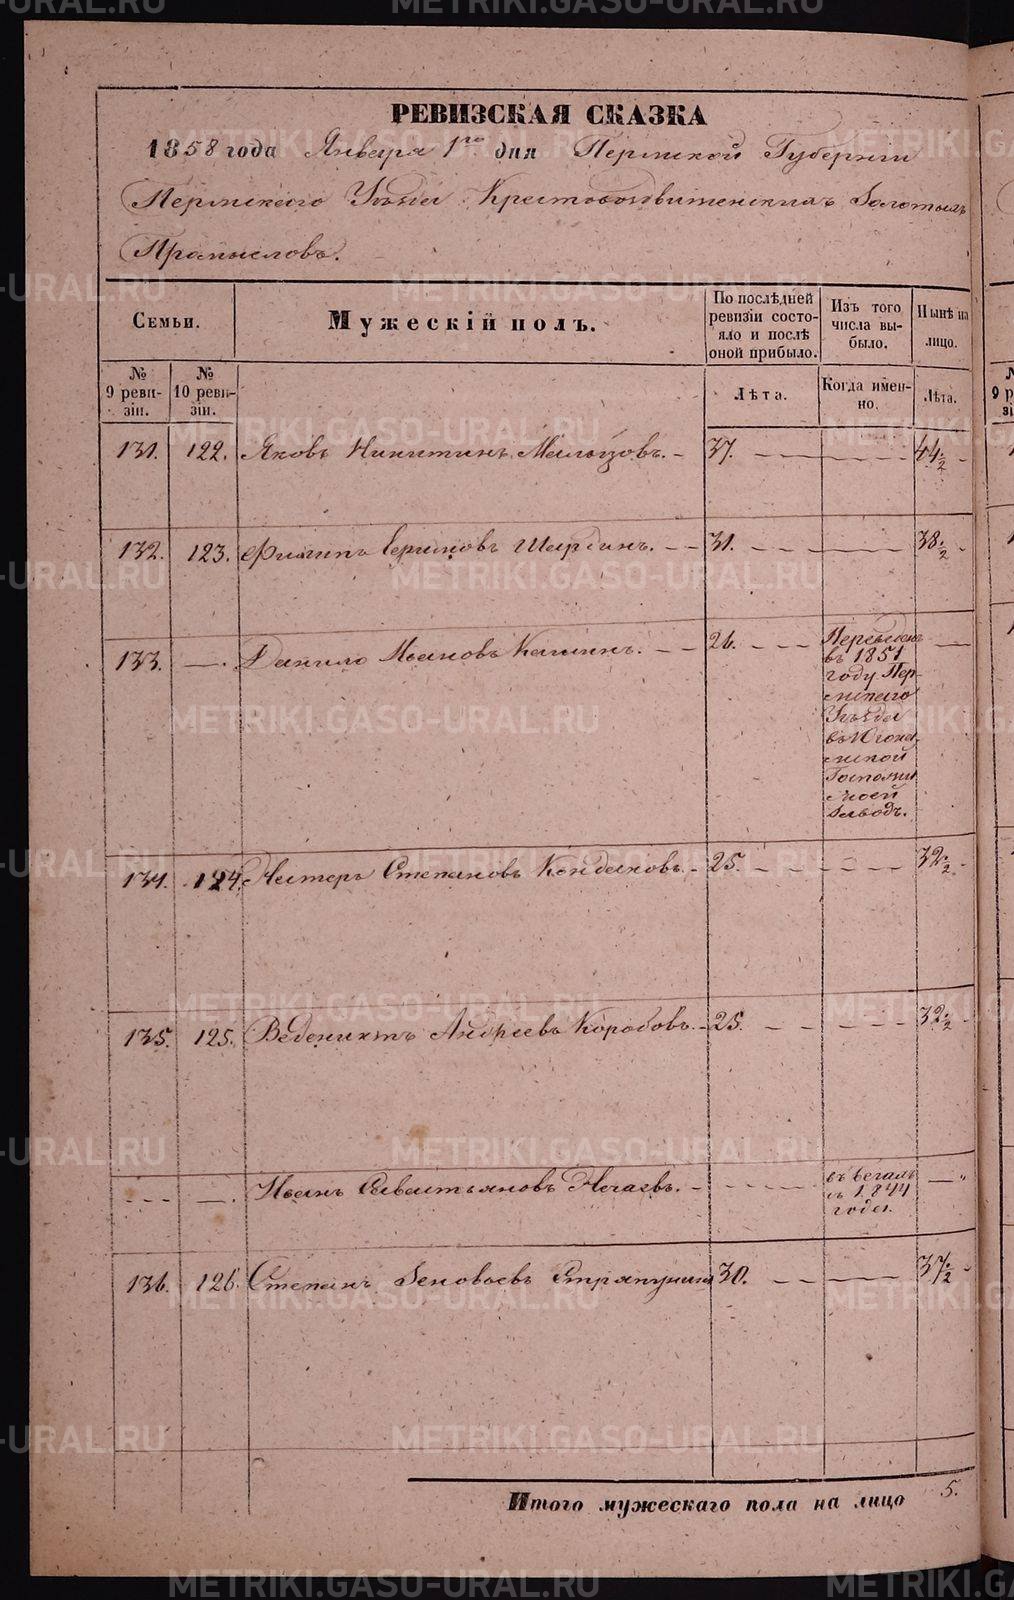 РЕВИЗСКАЯ СКАЗКА
1858 года Января 1го дня Пермской Губерніи
Пермскаго Уѣзда Крестовоздвиженскихъ Золотыхъ
Промысловъ.
Семьи.
Мужескій полъ.
По послѣдней ревизіи состояло и послѣ оной прибыло.
Изъ того числа выбыло.
Нынѣ на лицо.
№ 9 ревизіи.
№ 10 ревизіи.
Лѣта.
Когда именно.
Лѣта.
131. 122. Яковъ Никитинъ Мальцовъ. — 37. — — — 44 ½ —
132. 123. Филипъ Сергѣевъ Шардинъ. — — 31. — — — 38 ½ —
133. —. Данило Ивановъ Калининъ. — — 26. — — — Переведенъ —
въ 1851
году Пер-
мскаго
Уѣзда
въ Югов-
ской
Заводъ.
134. 124. Нестеръ Степановъ Кондаковъ. — 25. — — — 32 ½ —
135. 125. Веденихтъ Андреевъ Коробовъ. — 25. — — — 32 ½ —
— — — —. Иванъ Савастьяновъ Нечаевъ. — — — въ бегахъ —
съ 1844
года.
136. 126. Степанъ Зеновьевъ Стряпунинъ 30. — — — 37 ½ —
Итого мужескаго пола на лицо 5.
METRIKI.GASO-URAL.RU